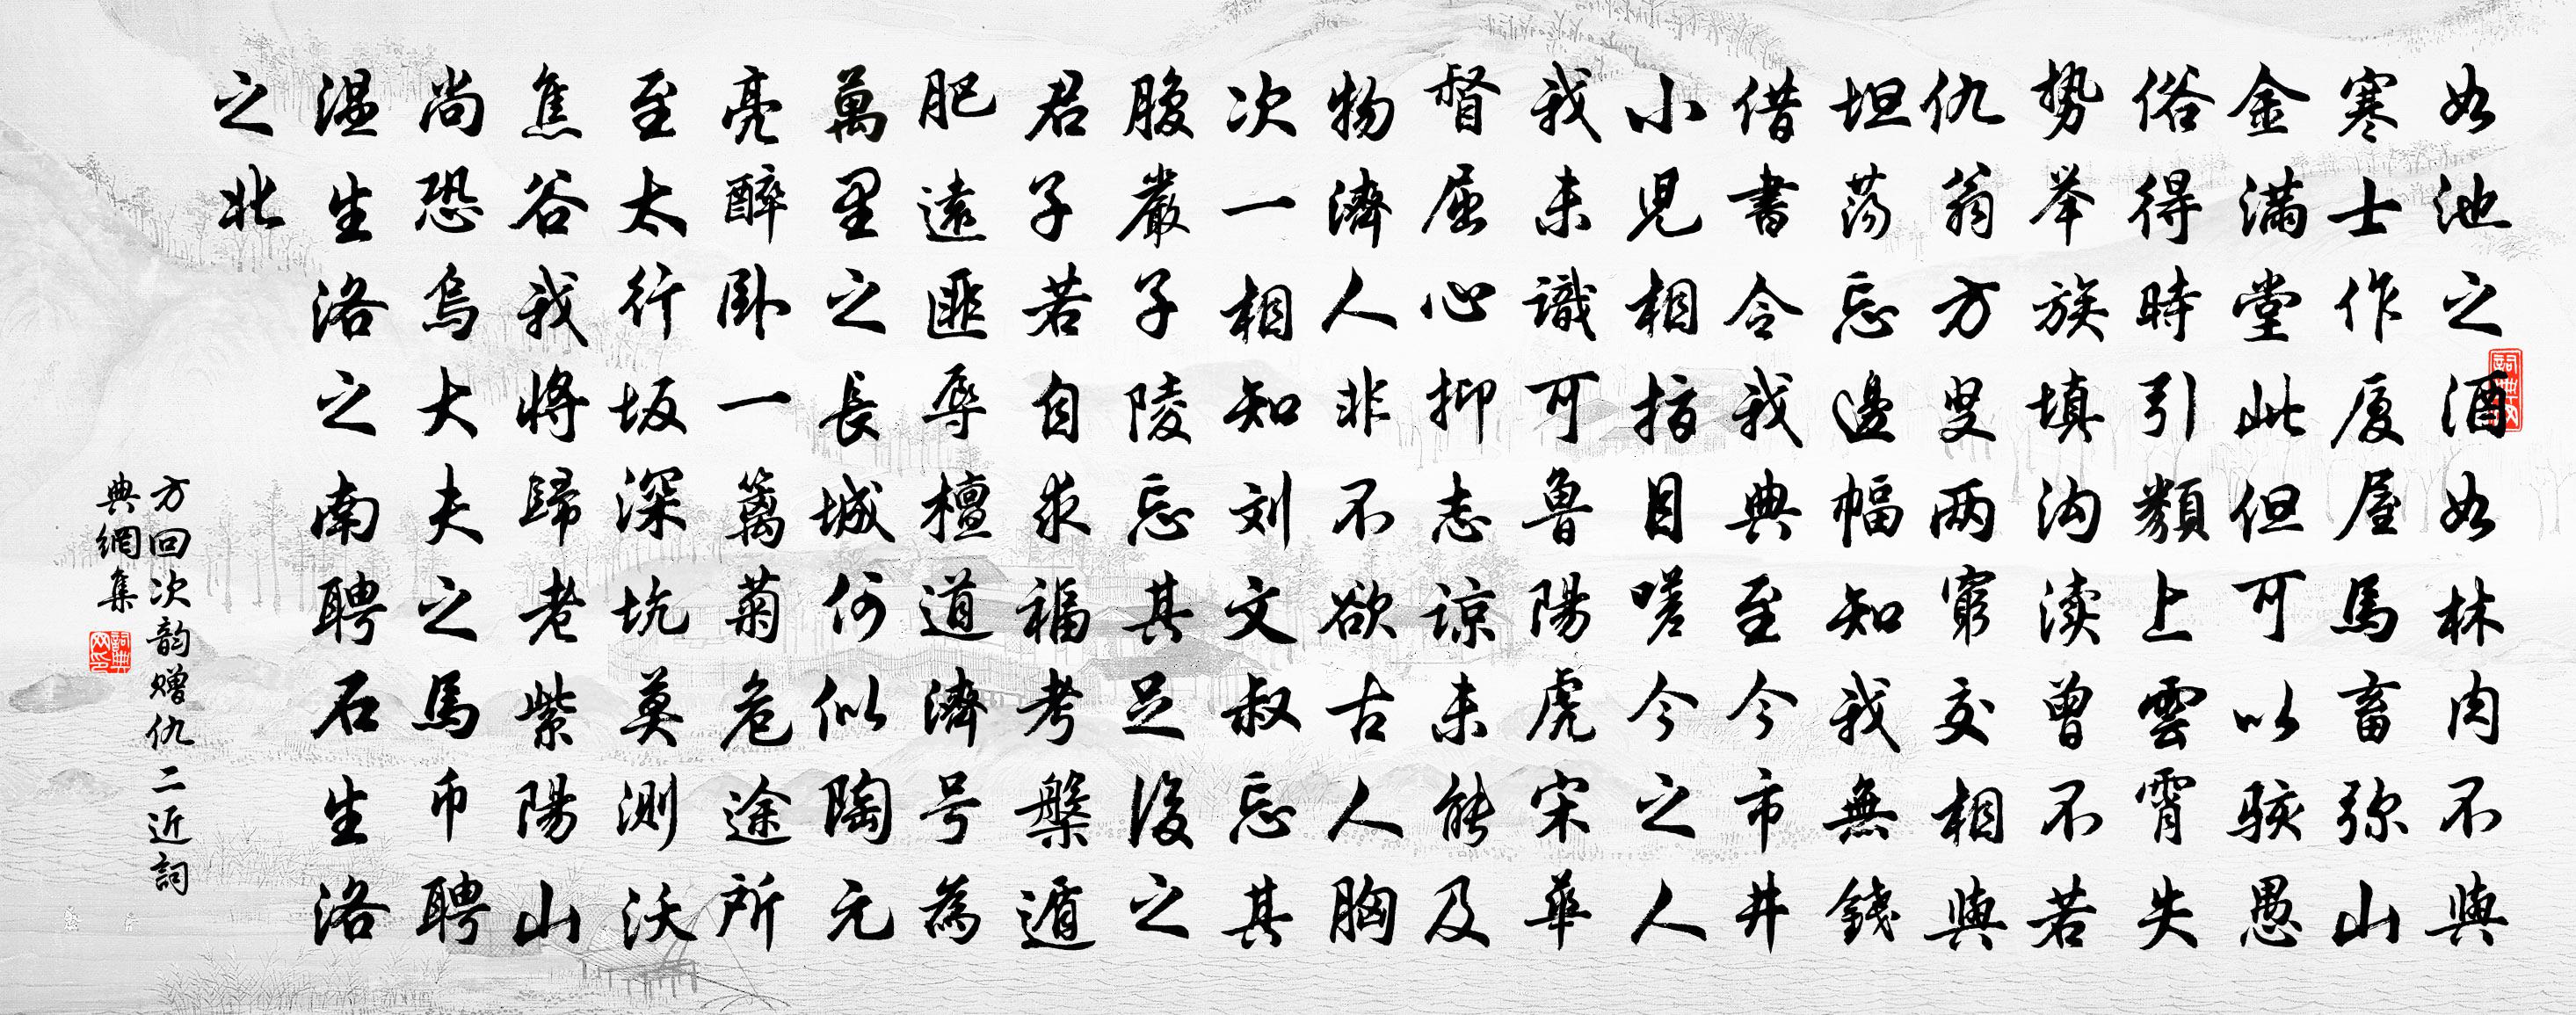 如池之酒如林肉不與
寒士作厦屋馬畜弥山
金滿堂此但可以駭愚
俗得時引類上雲霄失
势举族填沟渎曾不若
仇翁方叟两窮交相與
坦蕩忘邊幅知我無錢
借書令我典至今市井
小兒相指目嗟今之人
我未識可魯陽虎宋華
督屈心抑志谅未能及
物濟人非不欲古人胸
次一相知刘文叔忘其
腹嚴子陵忘其足後之
君子若自求福考槃遁
肥遠匪辱檀道濟号為
萬里之長城何似陶元
亮醉卧一篱菊危途所
至太行坂深坑莫測沃
焦谷我將歸老紫陽山
尚恐烏大夫之馬币聘
温生洛之南聘石生洛
之北
方回次韵赠仇二近詞
典網集
詞典网印